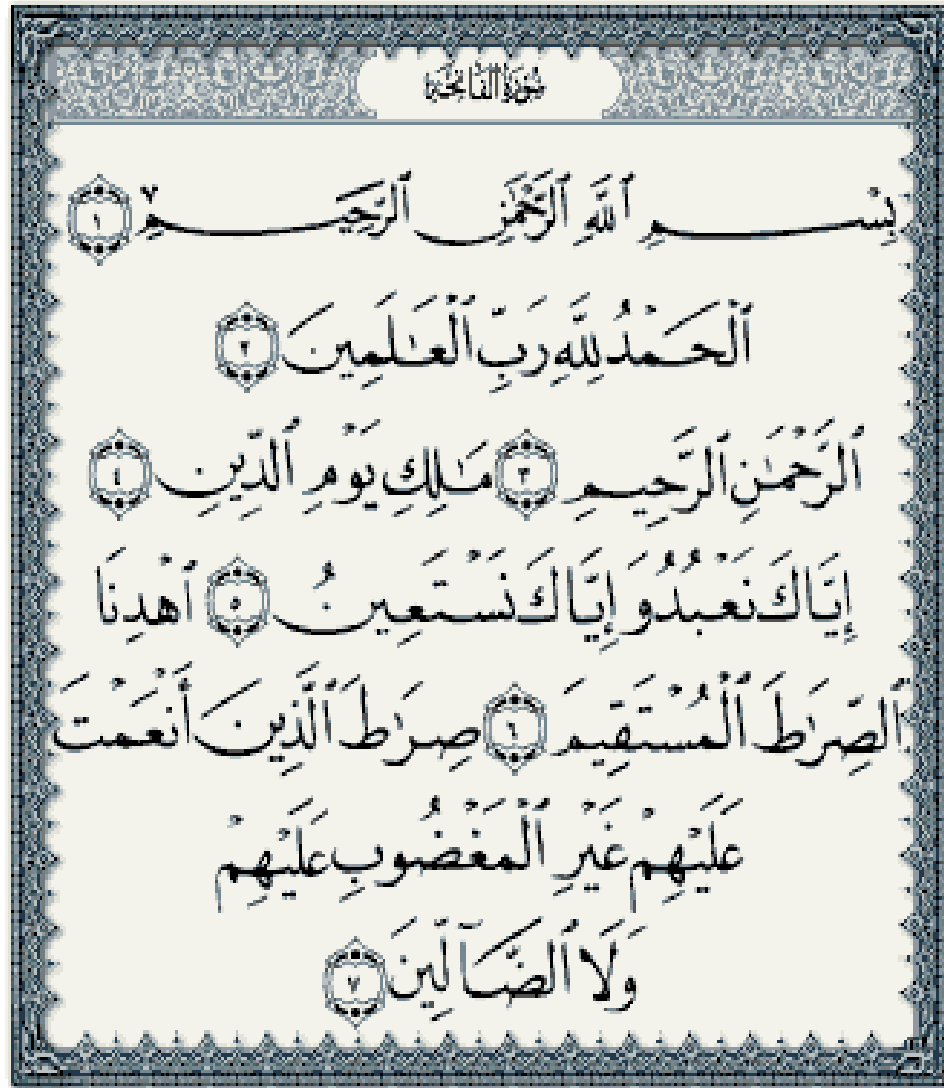 سُورَةُ الفَاتِحَةِ
بِسْمِ ٱللَّهِ ٱلرَّحْمَٰنِ ٱلرَّحِيمِ ٧ ١
ٱلْحَمْدُ لِلَّهِ رَبِّ ٱلْعَٰلَمِينَ ٢
ٱلرَّحْمَٰنِ ٱلرَّحِيمِ ٣ مَٰلِكِ يَوْمِ ٱلدِّينِ ٤
إِيَّاكَ نَعْبُدُ وَإِيَّاكَ نَسْتَعِينُ ٥ ٱهْدِنَا
ٱلصِّرَٰطَ ٱلْمُسْتَقِيمَ ٦ صِرَٰطَ ٱلَّذِينَ أَنْعَمْتَ
عَلَيْهِمْ غَيْرِ ٱلْمَغْضُوبِ عَلَيْهِمْ
وَلَا ٱلضَّآلِّينَ ٧